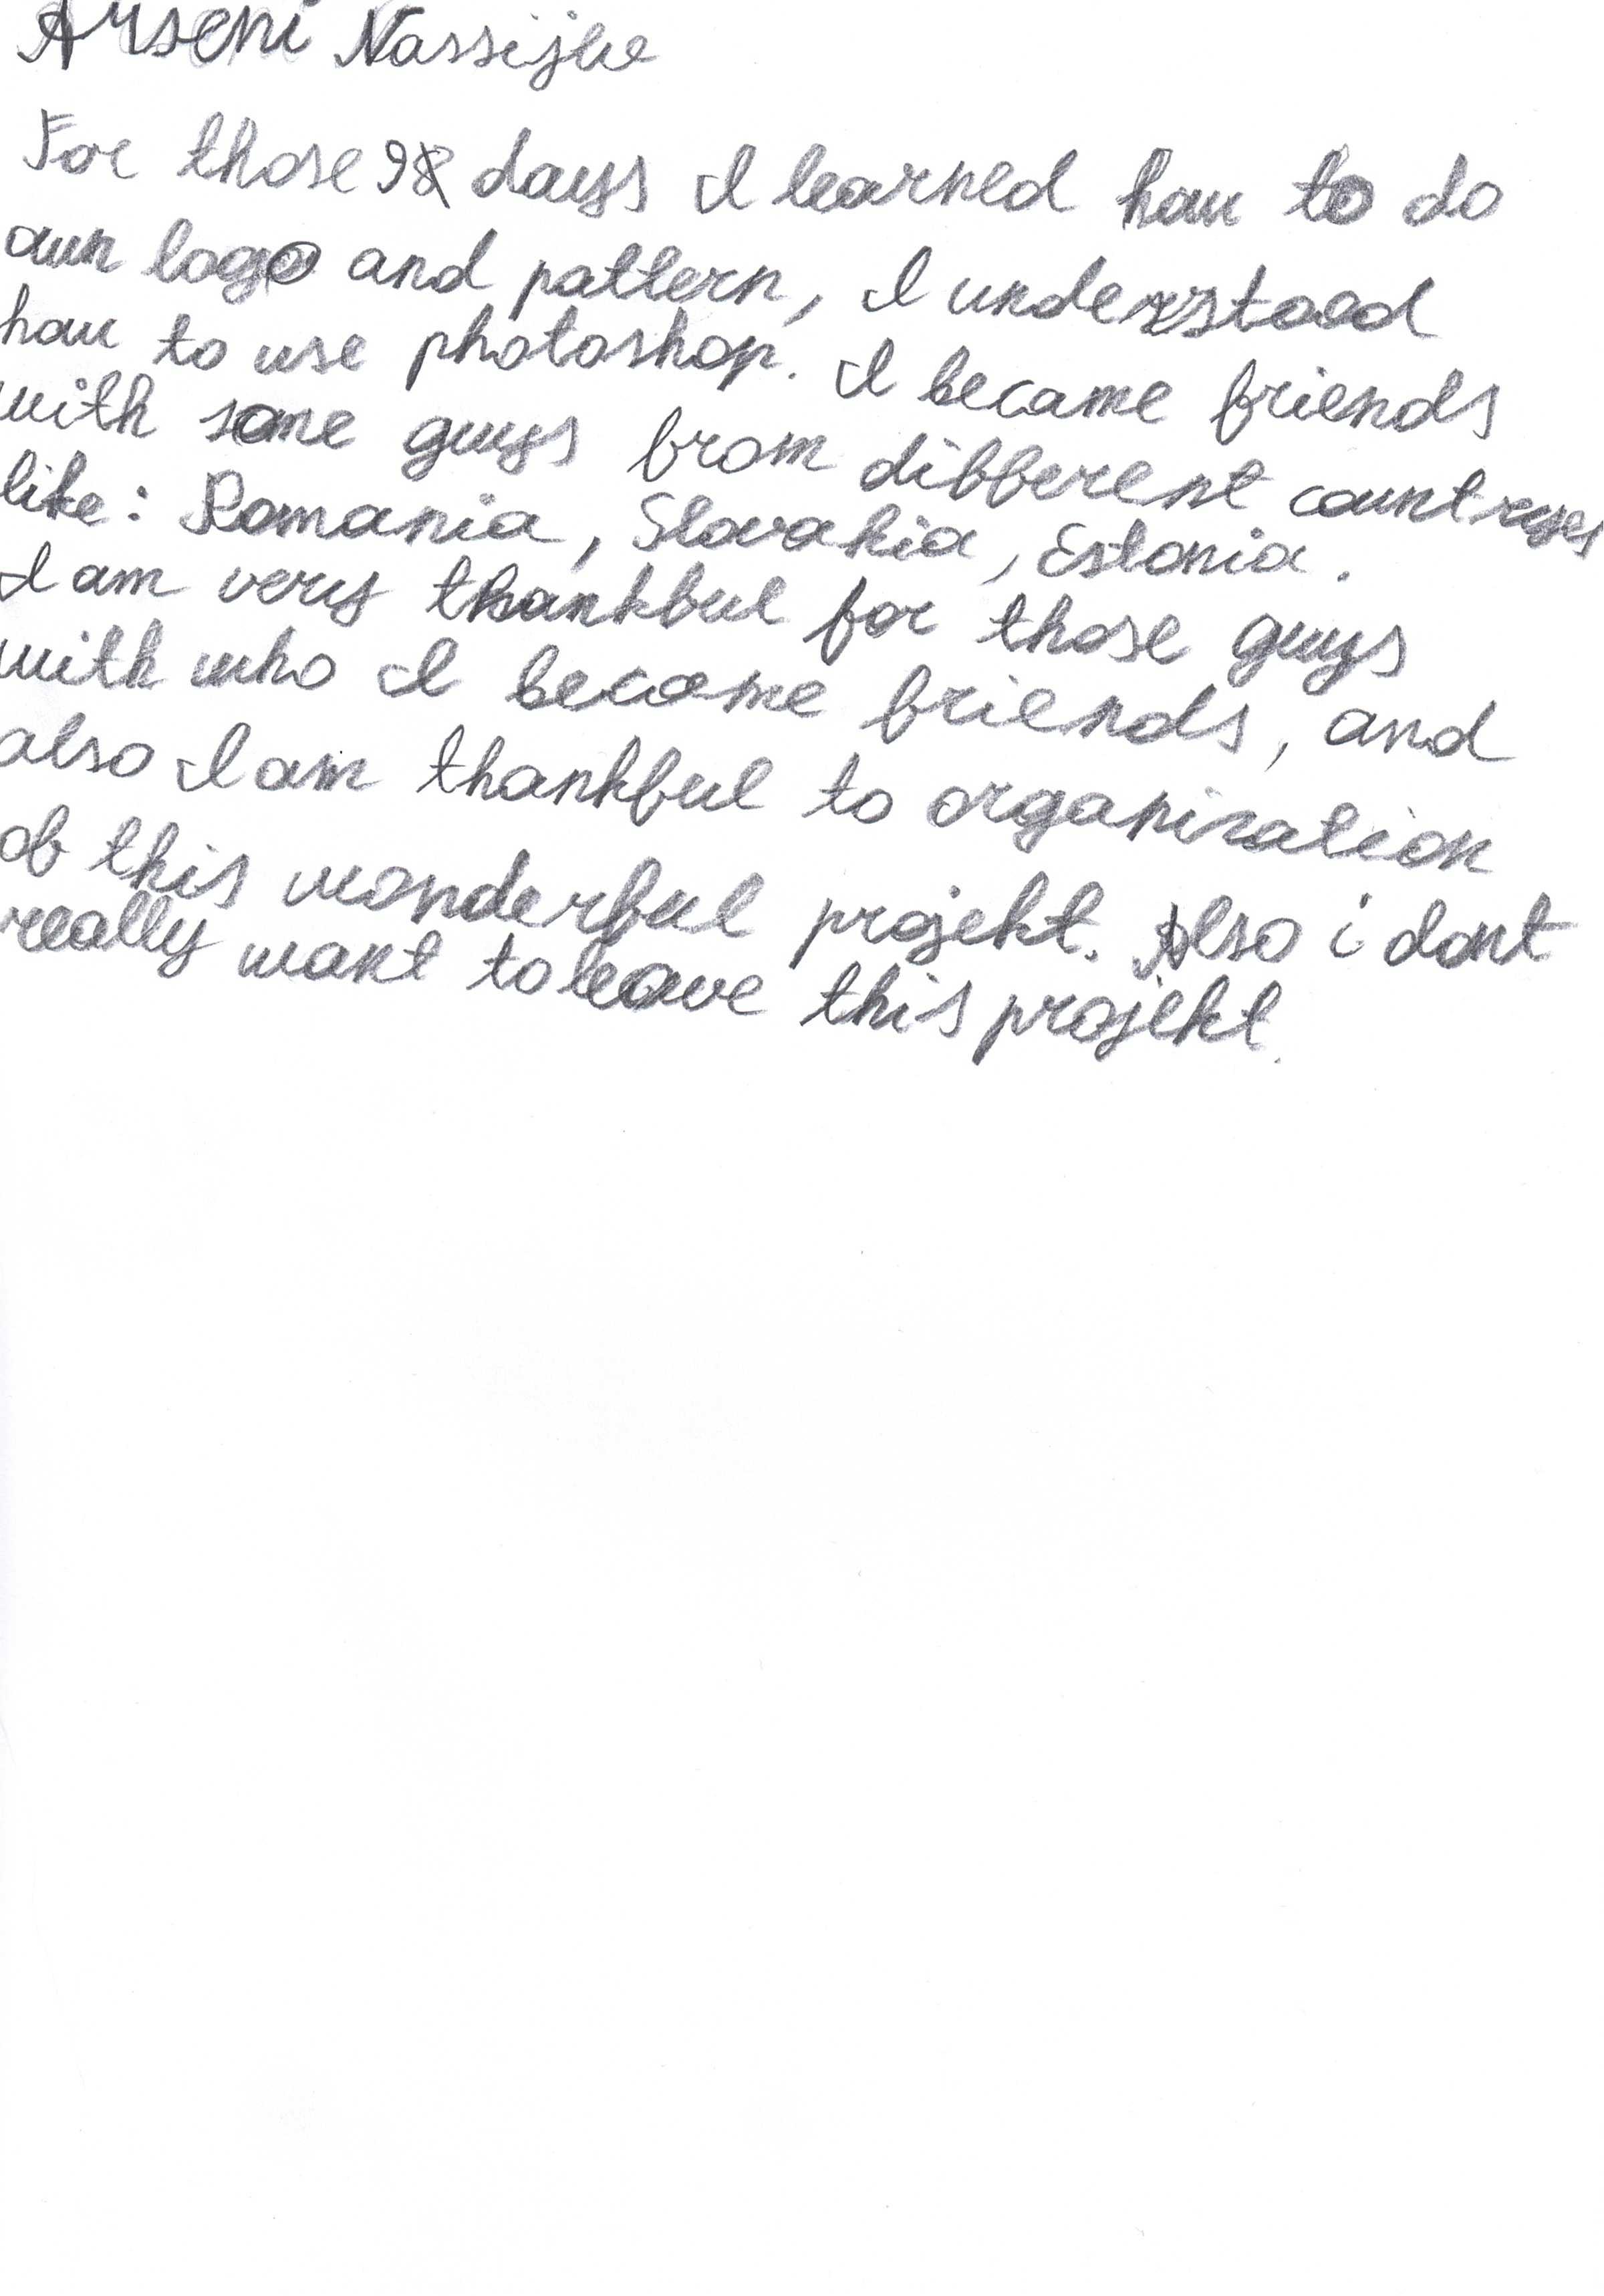 Arseni
For those 9 days I learned how to do
own logo and pattern, I understood
how to use photoshop. I became friends
with some guys from different countryes
like: Romania, Slovakia, Estonia.
I am very thankful for those guys
with who I become friends, and
also I am thankful to organisation
of this wonderful projekt. Also i dont
really want to leave this projekt.